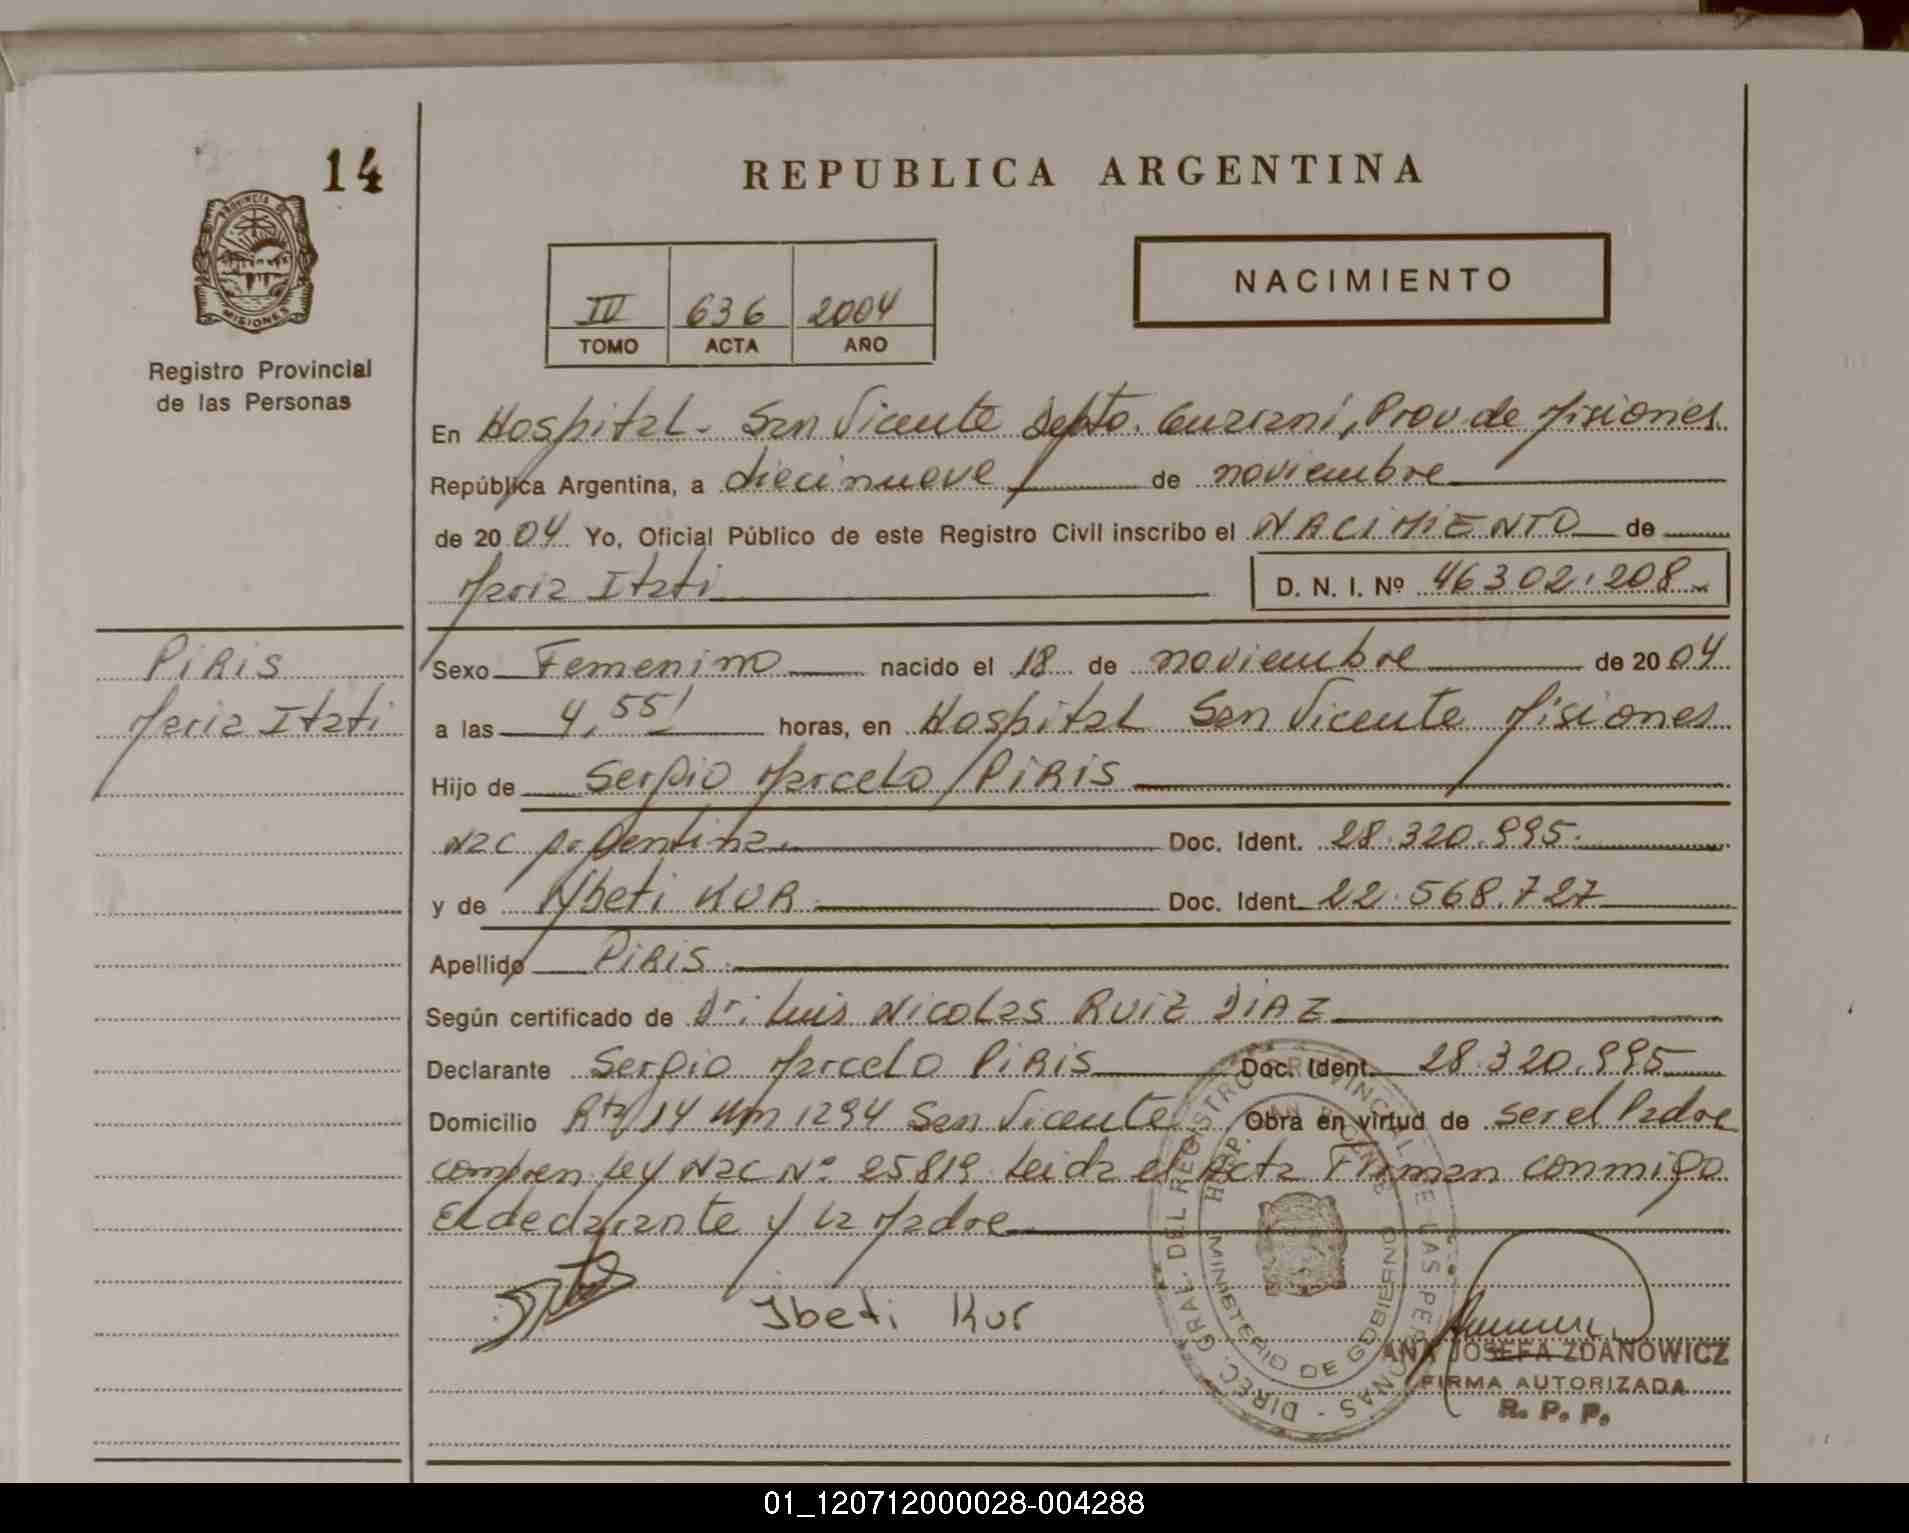 14
PROVINCIA DE
MISIONES
Registro Provincial
de las Personas
REPUBLICA ARGENTINA
NACIMIENTO
IV 636 2004
TOMO ACTA AÑO
En Hospital - San Vicente Depto. Guarani, Prov. de Misiones
República Argentina, a diecinueve de noviembre
de 2004 Yo, Oficial Público de este Registro Civil inscribo el NACIMIENTO de
Maria Itati D. N. I. Nº 46302.208
PIRIS
Maria Itati
Sexo Femenino nacido el 18 de noviembre de 2004
a las 4,55' horas, en Hospital San Vicente Misiones
Hijo de Sergio Marcelo PIRIS
Nac Argentina Doc. Ident. 28.320.995.
y de Ybeti KUR Doc. Ident. 22.568.727
Apellido PIRIS
Según certificado de Dr: Luis Nicolas RUIZ DIAZ
Declarante Sergio Marcelo PIRIS Doc. Ident. 28.320.995
Domicilio Rta 14 Km 1294 San Vicente Obra en virtud de ser el Padre
compren Ley Nac Nº 25819 Leida el Acta Firman conmigo
El declarante y la Madre
Ibeti Kur
DIREC. GRAL. DEL REGISTRO PROVINCIAL DE LAS PERSONAS
HOSP. SAN VICENTE
MINISTERIO DE GOBIERNO
ANA JOSEFA ZDANOWICZ
FIRMA AUTORIZADA
R. P. P.
01_120712000028-004288